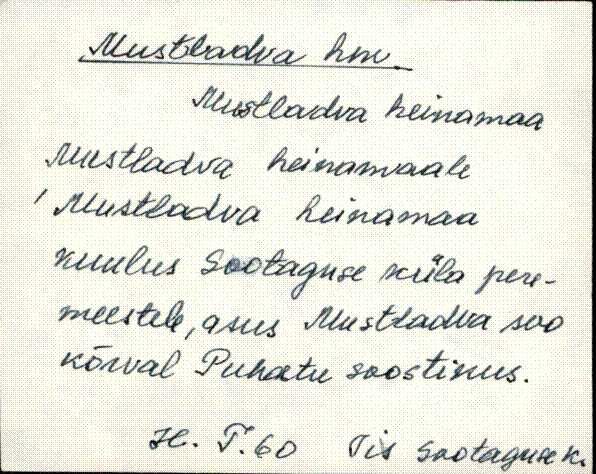 Mustladva hm.
Mustladva heinamaa
Mustladva heinamaale
'Mustladva heinamaa
kuulus Sootaguse küla pere-
meestele, asus Mustladva soo
kõrval Puhatu soostikus.
H. T. 60 Iis Sootaguse k.